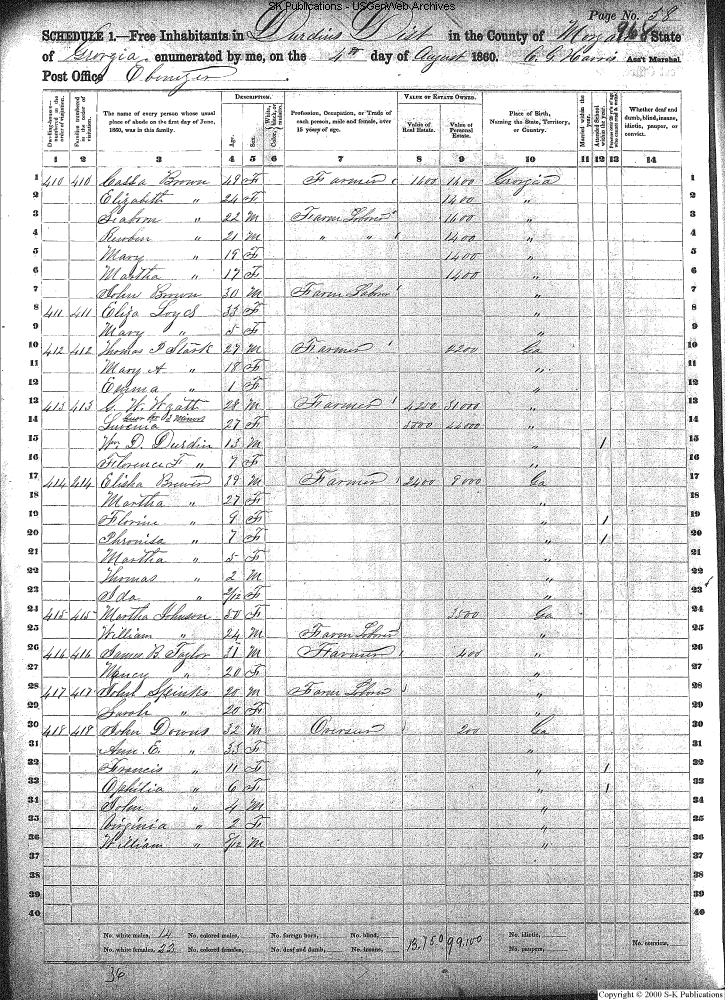 SK Publications - USGenWeb Archives
Page No. 58
968
SCHEDULE 1.—Free Inhabitants in Durdins Dist in the County of Morgan State
of Georgia enumerated by me, on the 4th day of August 1860. C. G. Harris Ass't Marshal
Post Office Ebenizer
DESCRIPTION. VALUE OF ESTATE OWNED.
Dwelling-houses—numbered in the order of visitation. Families numbered in the order of visitation. The name of every person whose usual place of abode on the first day of June, 1860, was in this family. Age. Sex. Color, White, black, or mulatto. Profession, Occupation, or Trade of each person, male and female, over 15 years of age. Value of Real Estate. Value of Personal Estate. Place of Birth, Naming the State, Territory, or Country. Married within the year. Attended School within the year. Whether deaf and dumb, blind, insane, idiotic, pauper, or convict.
1 2 3 4 5 6 7 8 9 10 11 12 13 14
1 410 410 Brown 49 F Farmer 1600 1600 Georgia 1
2 Elizabeth " 24 F 1400 " 2
3 Seaborn " 22 M Farm Laborer 1600 " 3
4 Reuben " 21 M " " 1400 " 4
5 Mary " 19 F 1400 " 5
6 Martha " 17 F 1400 " 6
7 John Brown 30 M Farm Laborer " 7
8 411 411 Eliza Loyd 33 F " 8
9 Mary " 5 F " 9
10 412 412 Thomas P Stark 27 M Farmer 2200 Ga 10
11 Mary A " 18 F " 11
12 Emma " 1 F " 12
13 413 413 G. W. Wyatt 28 M Farmer 4250 31000 " 13
Guar for 2 Minors
14 Luvenia 27 F 44000 " 14
15 Wm D. Durdin 13 M " 1 15
16 Florence F. " 7 F " 16
17 414 414 Elisha Brewer 39 M Farmer 2400 9000 Ga 17
18 Martha " 27 F " 18
19 Florine " 9 F " 1 19
20 Phronisa " 7 F " 1 20
21 Martha " 5 F " 21
22 Thomas " 2 M " 22
23 Ida " 2/12 F " 23
24 415 415 Martha Johnson 50 F 3500 Ga 24
25 William " 24 M Farm Laborer " 25
26 416 416 James B Taylor 31 M Farmer 400 " 26
27 Nancy " 20 F " 27
28 417 417 John Spinks 20 M Farm Laborer " 28
29 Sarah " 20 F " 29
30 418 418 John Downs 32 M Overseer 200 Ga 30
31 Ann E. " 33 F " 31
32 Francis " 11 F " 1 32
33 Ophilia " 6 F " 1 33
34 John " 4 M " 34
35 Virginia " 2 F " 35
36 William " 5/12 M " 36
37 37
38 38
39 39
40 40
No. white males, 14 No. colored males, No. foreign born, No. blind, No. idiotic,
No. white females, 22 No. colored females, No. deaf and dumb, No. insane, 13,750 99,100 No. paupers, No. convicts,
36
Copyright © 2000 S-K Publications